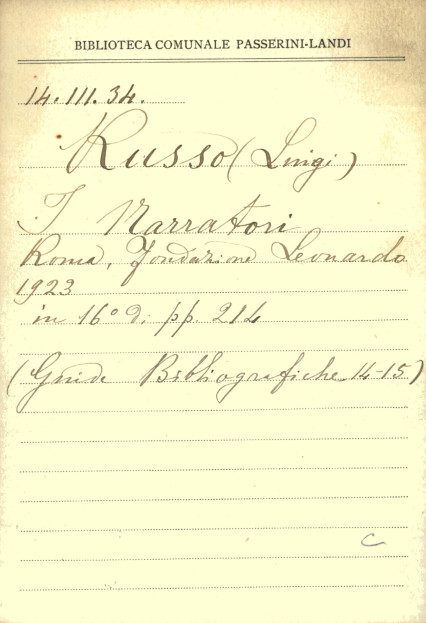 BIBLIOTECA COMUNALE PASSERINI-LANDI
14.III.34.
Russo (Luigi)
I Narratori
Roma, Fondazione Leonardo
1923
in 16° d. pp. 214
(Guide Bibliografiche 14-15)
C